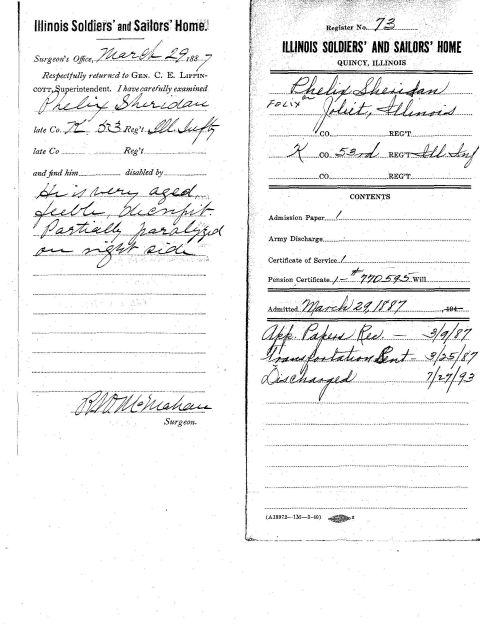 Illinois Soldiers' and Sailors' Home.
Surgeon's Office, March 29, 1887
Respectfully returned to GEN. C. E. LIPPIN-
COTT, Superintendent. I have carefully examined
Phelix Sheridan
late Co. K 53 Reg't Ill. Infty
late Co Reg't
and find him disabled by
He is very aged
feeble, decrepit.
Partially paralyzed
on right side
McMahan
Surgeon.
Register No. 73
ILLINOIS SOLDIERS' AND SAILORS' HOME
QUINCY, ILLINOIS
Phelix Sheridan
or
FOLIX
Joliet, Illinois
CO. REG'T
K CO. 53rd REG'T Ill Inf
CO. REG'T
CONTENTS
Admission Paper 1
Army Discharge
Certificate of Service 1
Pension Certificate 1 - # 770595 Will
Admitted March 29, 1887 194
App. Papers Rec. - 3/9/87
Transportation Sent - 3/25/87
Discharged 7/27/93